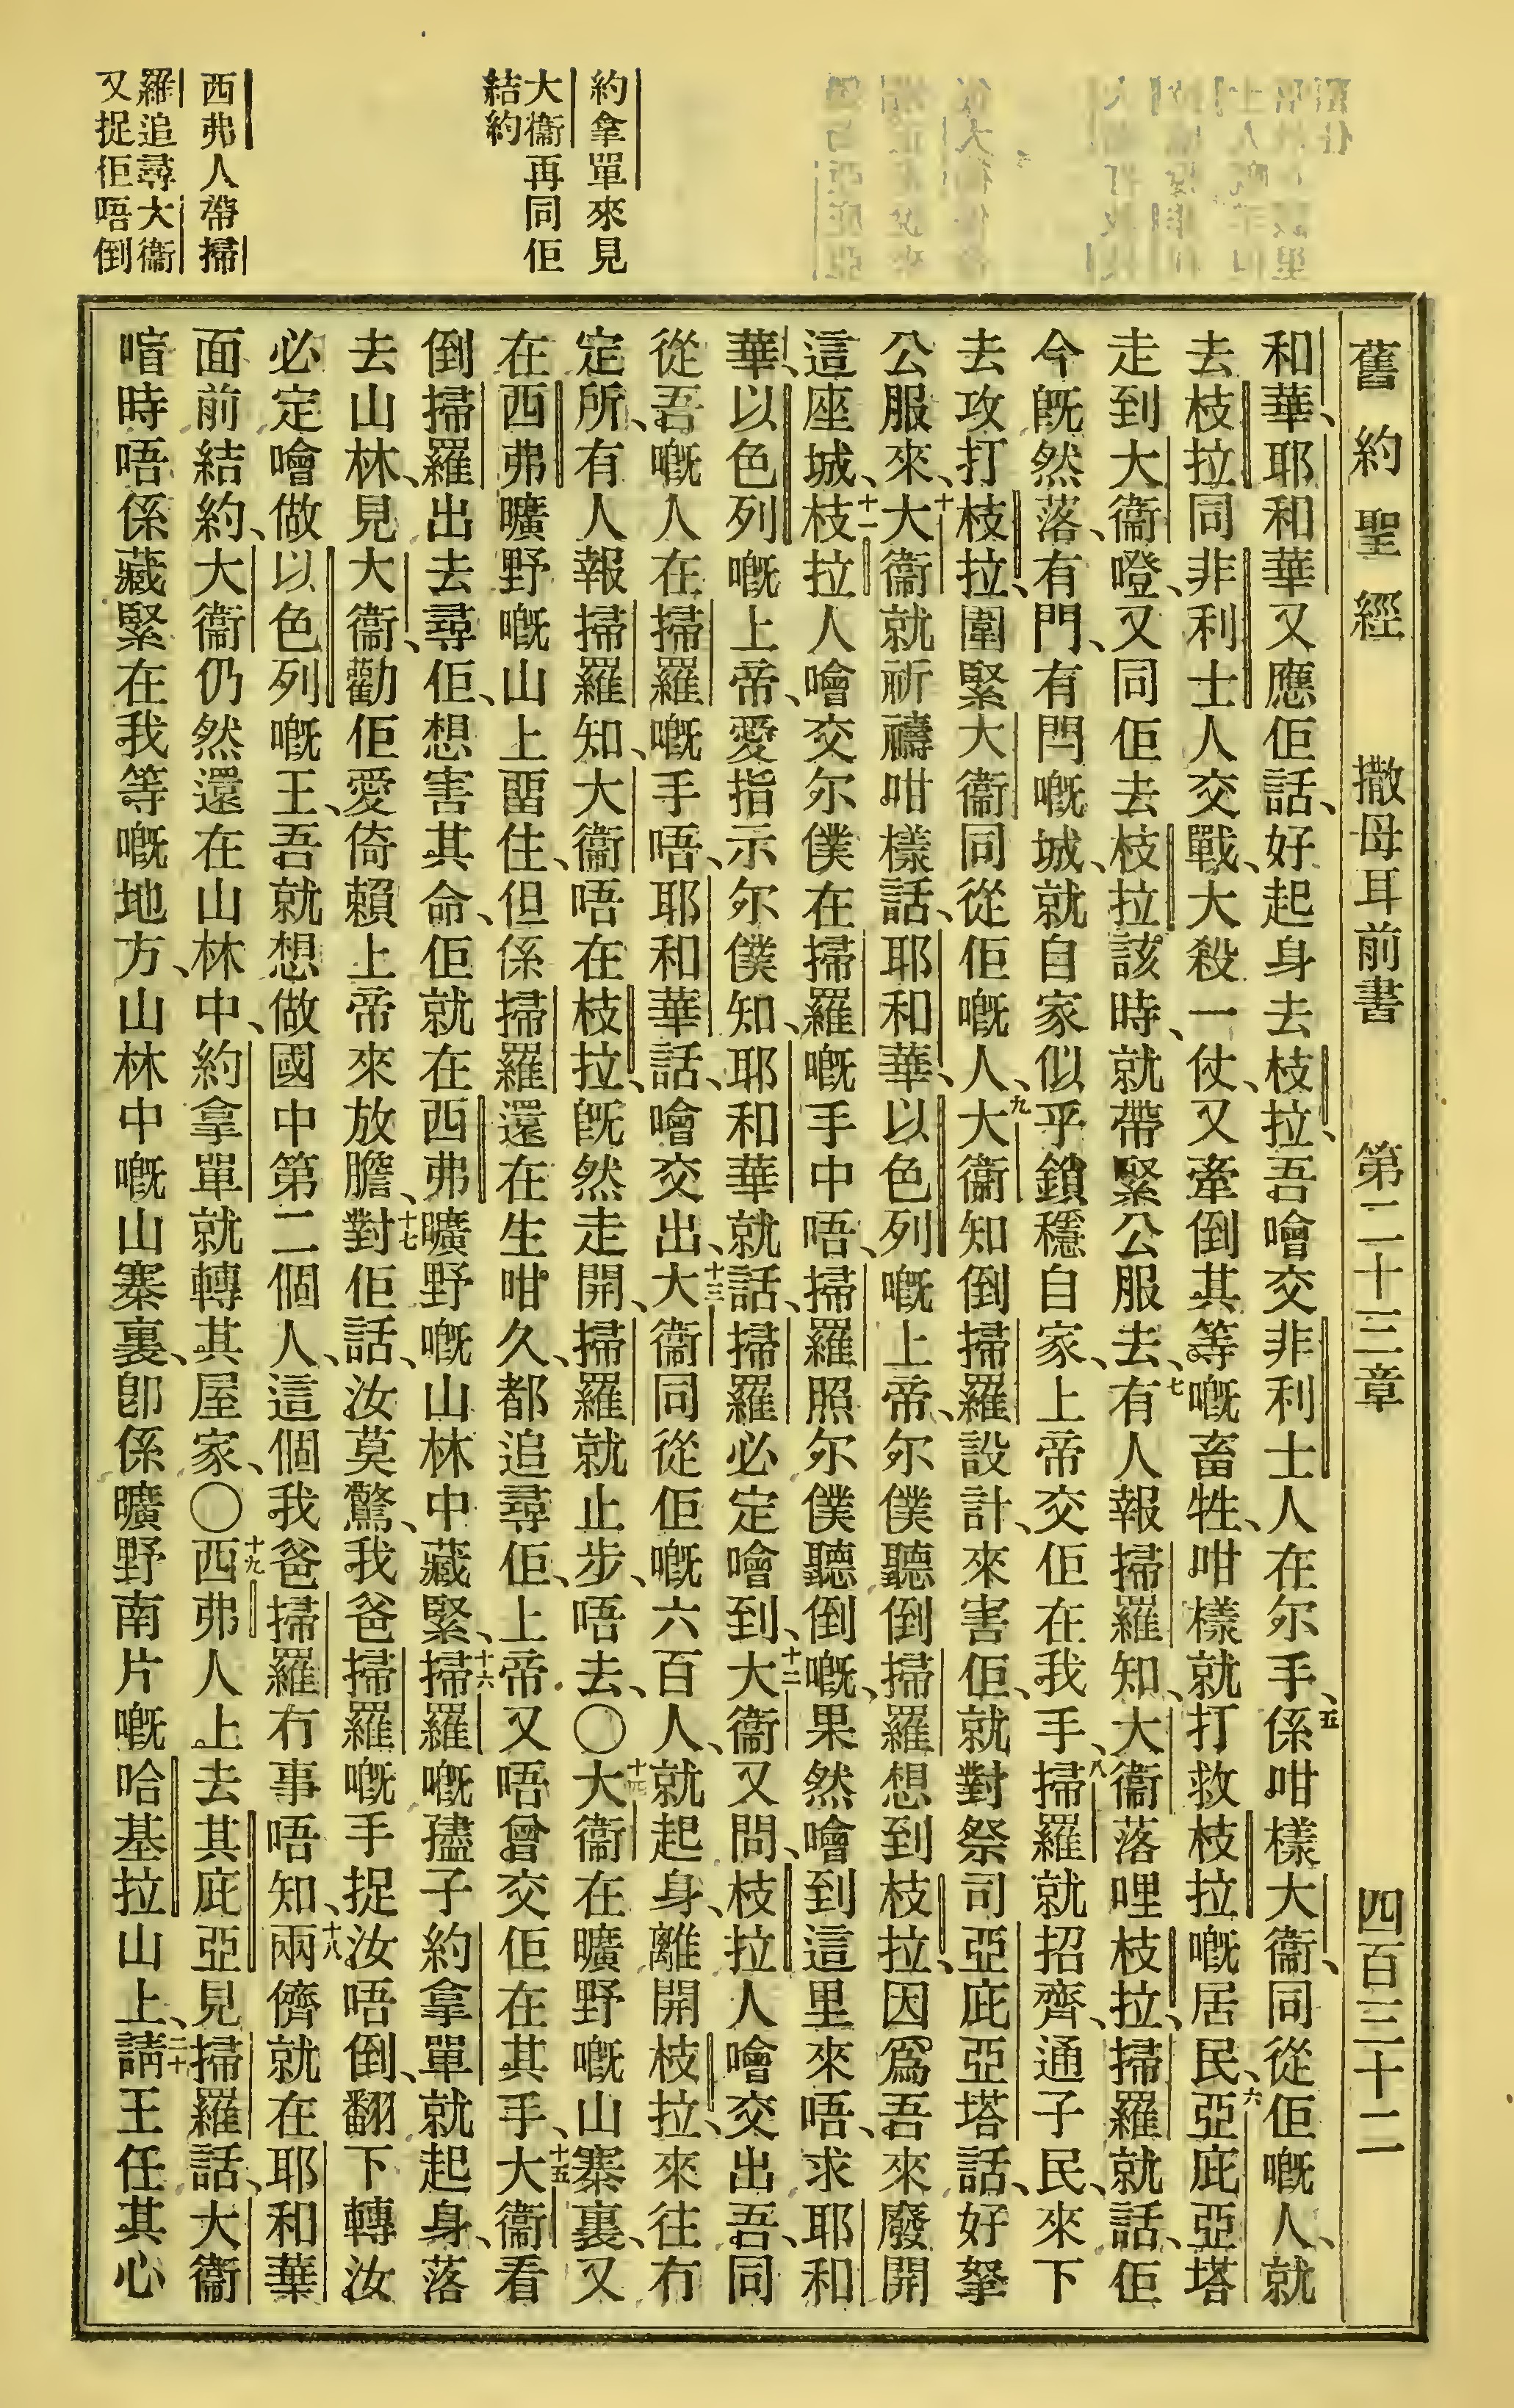 約拿單來見
大衞再同佢
結約
西弗人帶掃
羅追尋大衞
又捉佢唔倒
舊約聖經 撒母耳前書 第二十三章 四百三十二
和華、耶和華又應佢話、好起身去枝拉、吾噲交非利士人在尔手、五係咁樣大衞、同從佢嘅人、就
去枝拉同非利士人交戰、大殺一仗、又牽倒其等嘅畜牲、咁樣就打救枝拉嘅居民、六亞庇亞塔
走到大衞嶝、又同佢去枝拉該時、就帶緊公服去、七有人報掃羅知、大衞落哩枝拉、掃羅就話、佢
今既然落、有門、有閂嘅城、就自家似乎鎖穩自家、上帝交佢在我手、八掃羅就招齊通子民、來下
去攻打枝拉、圍緊大衞同從佢嘅人、九大衞知倒掃羅設計、來害佢、就對祭司亞庇亞塔話、好拏
公服來、十大衞就祈禱咁樣話、耶和華、以色列嘅上帝、尔僕聽倒掃羅想到枝拉、因爲吾來廢開
這座城、十一枝拉人噲交尔僕在掃羅嘅手中唔、掃羅照尔僕聽倒嘅、果然噲到這里來唔、求耶和
華、以色列嘅上帝、愛指示尔僕知、耶和華就話、掃羅必定噲到、十二大衞又問、枝拉人噲交出吾、同
從吾嘅人在掃羅嘅手唔、耶和華話、噲交出、十三大衞同從佢嘅六百人、就起身、離開枝拉、來往冇
定所、有人報掃羅知、大衞唔在枝拉、既然走開、掃羅就止步、唔去、〇十四大衞在曠野嘅山寨裏、又
在西弗曠野嘅山上畱住、但係掃羅還在生咁久、都追尋佢、上帝又唔曾交佢在其手、十五大衞看
倒掃羅出去尋佢、想害其命、佢就在西弗曠野嘅山林中藏緊、十六掃羅嘅孻子約拿單就起身、落
去山林、見大衞、勸佢愛倚賴上帝來放膽、十七對佢話、汝莫驚、我爸掃羅嘅手捉汝唔倒、翻下轉汝
必定噲做以色列嘅王、吾就想做國中第二個人、這個我爸掃羅冇事唔知、十八兩儕就在耶和華
面前結約、大衞仍然還在山林中、約拿單就轉其屋家、〇十九西弗人上去其庇亞見掃羅話、大衞
喧時唔係藏緊在我等嘅地方、山林中嘅山寨裏、卽係曠野南片嘅哈基拉山上、二十請王任其心